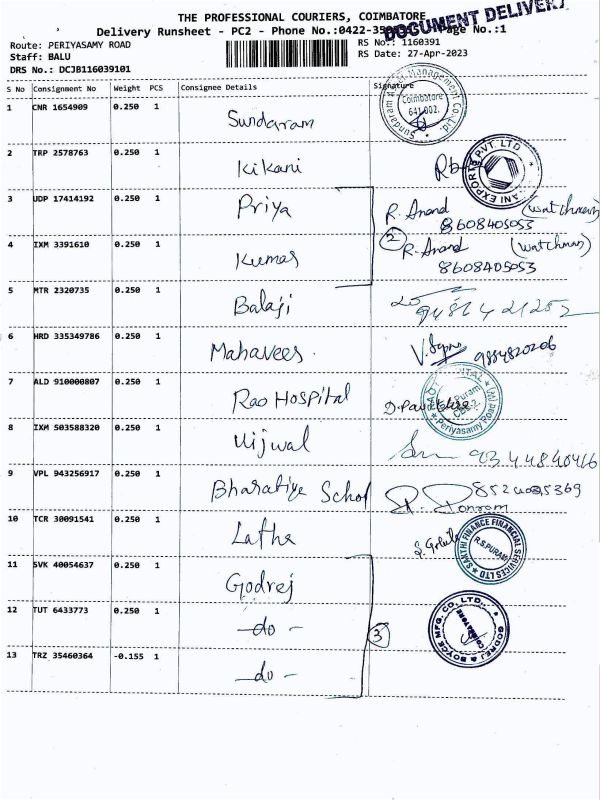 THE PROFESSIONAL COURIERS, COIMBATORE
DOCUMENT DELIVERY
Delivery Runsheet - PC2 - Phone No.:0422-35 Page No.:1
Route: PERIYASAMY ROAD RS No.: 1160391
Staff: BALU RS Date: 27-Apr-2023
DRS No.: DCJB116039101
S No Consignment No Weight PCS Consignee Details Signature
Sundaram Asset Management Company Ltd. Coimbatore 641 002.
1 CNR 1654909 0.250 1 Sundaram
2 TRP 2578763 0.250 1 Kikani
EXPORTS PVT. LTD
3 UDP 17414192 0.250 1 Priya R. Anand (watchman)
8608405053
4 IXM 3391610 0.250 1 Kumar 2 R. Anand (watchman)
8608405053
5 MTR 2320735 0.250 1 Balaji
6 HRD 335349786 0.250 1 Mahaveer 9884820206
7 ALD 910000807 0.250 1 Rao Hospital D. Pavithra
Periyasamy Road
8 IXM 503588320 0.250 1 Ujjwal 9344840466
9 VPL 943256917 0.250 1 Bharatiya School
10 TCR 30091541 0.250 1 Latha
SAKTHI FINANCE FINANCIAL SERVICES LTD R.S.PURAM
11 SVK 40054637 0.250 1 Godrej
12 TUT 6433773 0.250 1 -do- 3
GODREJ & BOYCE MFG. CO. LTD. COIMBATORE
13 TRZ 35460364 -0.155 1 -do-